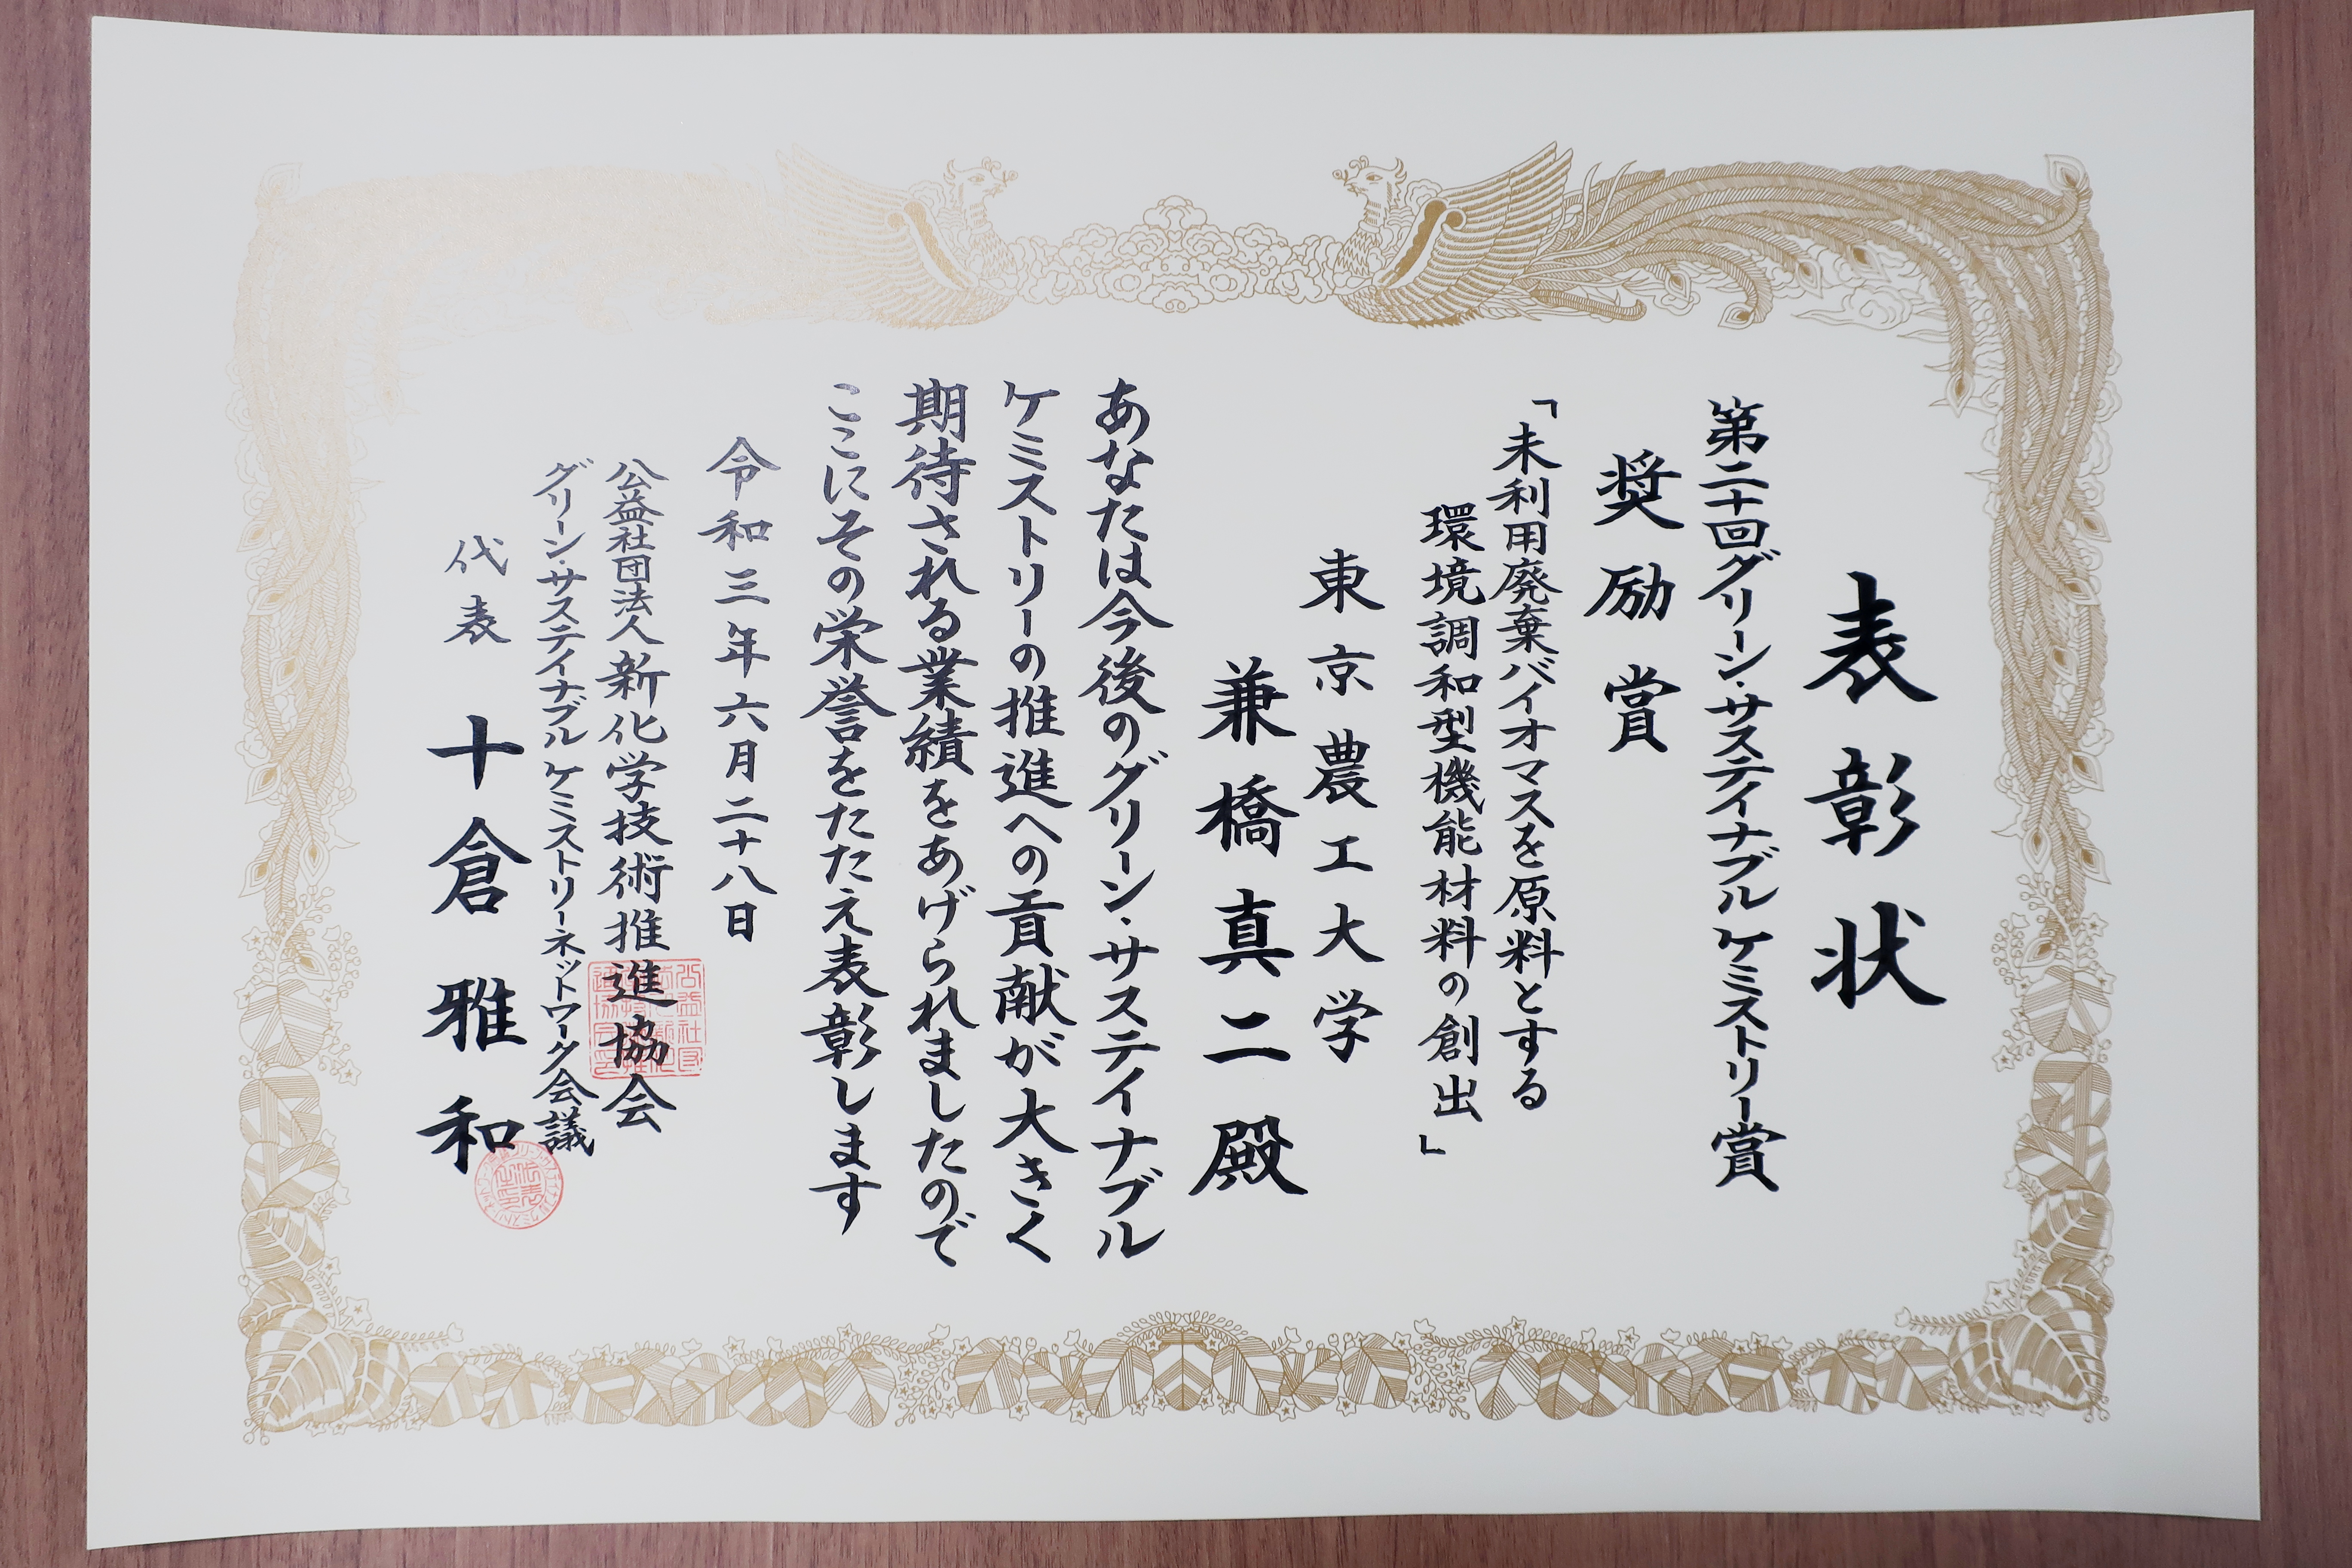 表彰状
第二十回グリーン・サステイナブル ケミストリー賞
奨励賞
「未利用廃棄バイオマスを原料とする
環境調和型機能材料の創出」
東京農工大学
兼橋真二殿
あなたは今後のグリーン・サステイナブル
ケミストリーの推進への貢献が大きく
期待される業績をあげられましたので
ここにその栄誉をたたえ表彰します
令和三年六月二十八日
公益社団法人新化学技術推進協会
グリーン・サステイナブル ケミストリーネットワーク会議
代表 十倉雅和